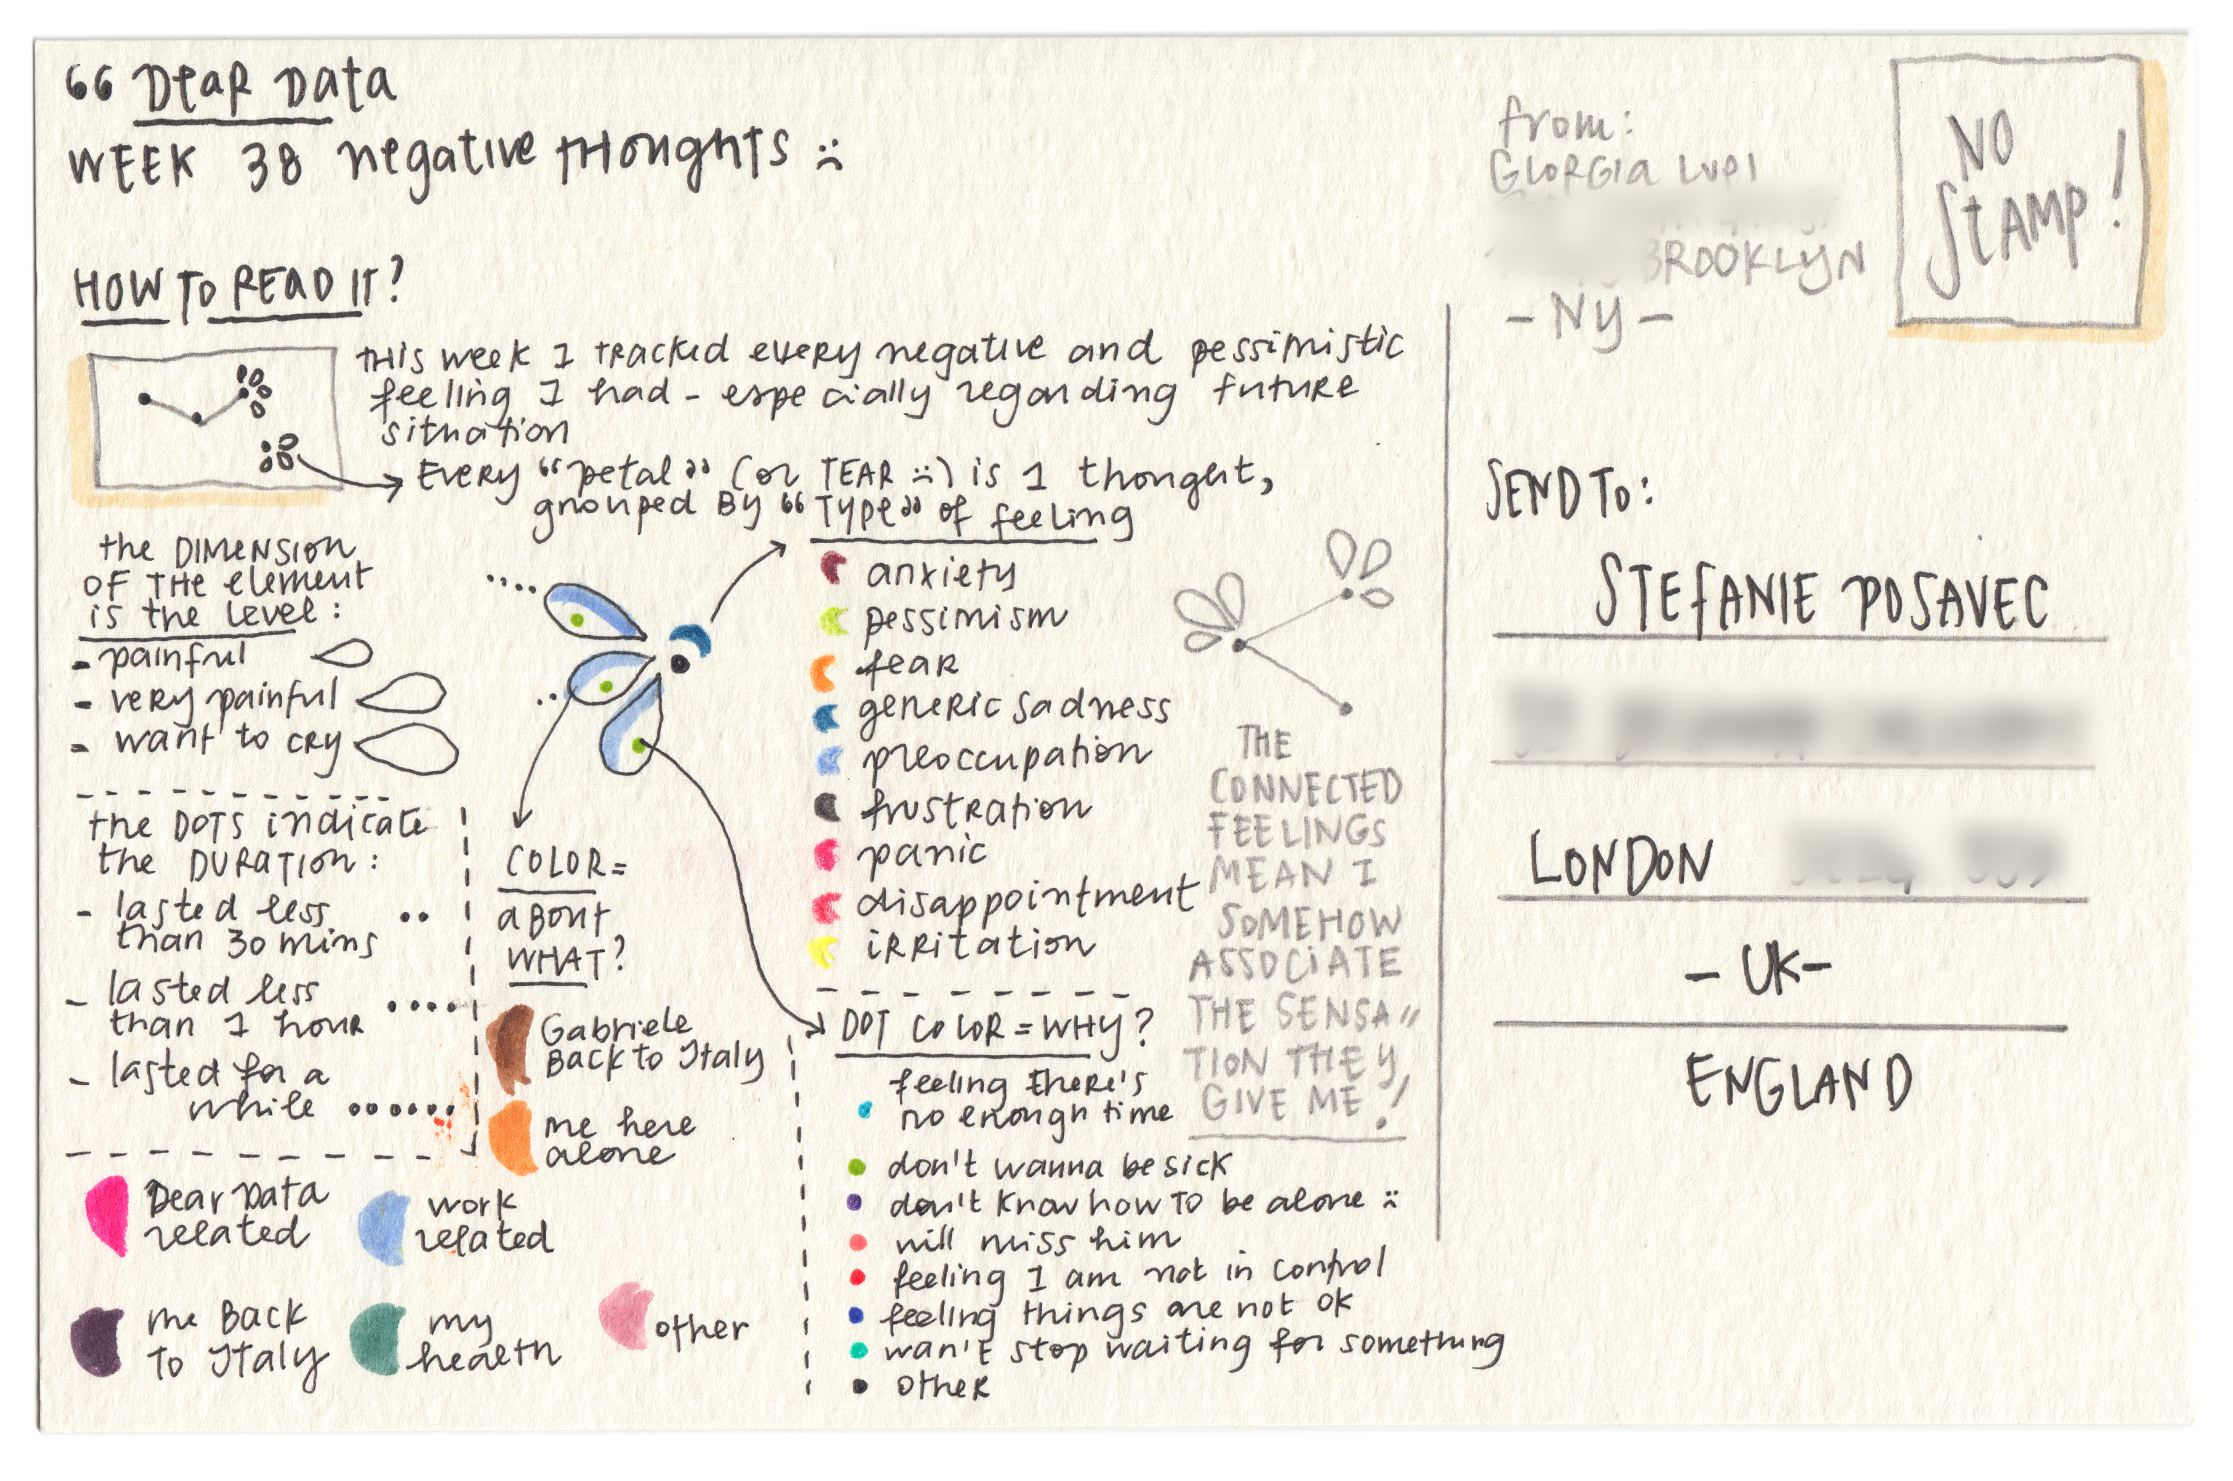 “ DEAR DATA
WEEK 38 negative THOUGHTS :(
HOW TO READ IT?
THIS WEEK I TRACKED EVERY negative and pessimistic
feeling I had - especially regarding FUTURE
situation
EVERY “petal” (or TEAR :() is 1 thought,
grouped BY “TYPE” of feeling
anxiety
pessimism
fear
generic sadness
preoccupation
frustration
panic
disappointment
irritation
the DIMENSION
OF THE element
is the LEVEL:
- painful
- very painful
- want to cry
the DOTS indicate
the DURATION:
- lasted less
than 30 mins
- lasted less
than 1 hour
- lasted for a
while
COLOR=
ABOUT
WHAT?
Gabriele
Back to Italy
me here
alone
Dear Data
related
work
related
me Back
To Italy
my
health
other
DOT COLOR = WHY?
feeling there's
no enough time
don't wanna be sick
don't know how TO be alone :(
will miss him
feeling I am not in control
feeling things are not OK
wan't stop waiting for something
other
THE
CONNECTED
FEELINGS
MEAN I
SOMEHOW
ASSOCIATE
THE SENSA
TION THEY
GIVE ME!
from:
GIORGIA LUPI
BROOKLYN
- NY -
NO
STAMP!
SEND TO:
STEFANIE POSAVEC
LONDON
- UK -
ENGLAND